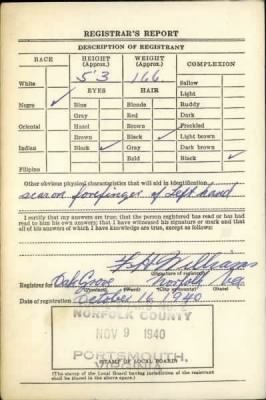 REGISTRAR'S REPORT
DESCRIPTION OF REGISTRANT
RACE HEIGHT (Approx.) WEIGHT (Approx.) COMPLEXION
5'3 166
White Sallow
EYES HAIR Light
Negro ✓ Blue Blonde Ruddy
Gray Red Dark
Oriental Hazel Brown Freckled
Brown Black ✓ Light brown
Indian Black ✓ Gray Dark brown
Bald Black ✓
Filipino
Other obvious physical characteristics that will aid in identification
scar on forefinger of Left hand
I certify that my answers are true; that the person registered has read or has had
read to him his own answers; that I have witnessed his signature or mark and that
all of his answers of which I have knowledge are true, except as follows:
Williams
(Signature of registrar)
Registrar for Norfolk Va
(Precinct) (Ward) (City or county) (State)
Date of registration October 16 1940
NORFOLK COUNTY
NOV 9 1940
PORTSMOUTH,
VIRGINIA
STAMP OF LOCAL BOARD
(The stamp of the Local Board having jurisdiction of the registrant
shall be placed in the above space.)